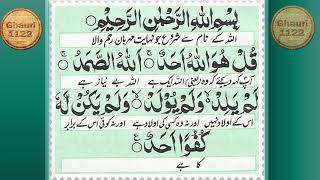 Ghauri
1122
Ghauri
1122
بِسْمِ اللّٰهِ الرَّحْمٰنِ الرَّحِيْمِ
اللہ کے نام سے شروع جو نہایت مہربان رحم والا
قُلْ هُوَ اللّٰهُ اَحَدٌ ۚ اَللّٰهُ الصَّمَدُ ۚ
آپ کہہ دیجئے کہ وہ (یعنی) اللہ ایک ہے اللہ بے نیاز ہے
لَمْ يَلِدْ ۙ وَلَمْ يُوْلَدْ ۙ وَلَمْ يَكُنْ لَّهٗ
اس کے اولاد نہیں اور نہ وہ کسی کی اولاد ہے اور نہ کوئی اس کے برابر
كُفُوًا اَحَدٌ
کا ہے